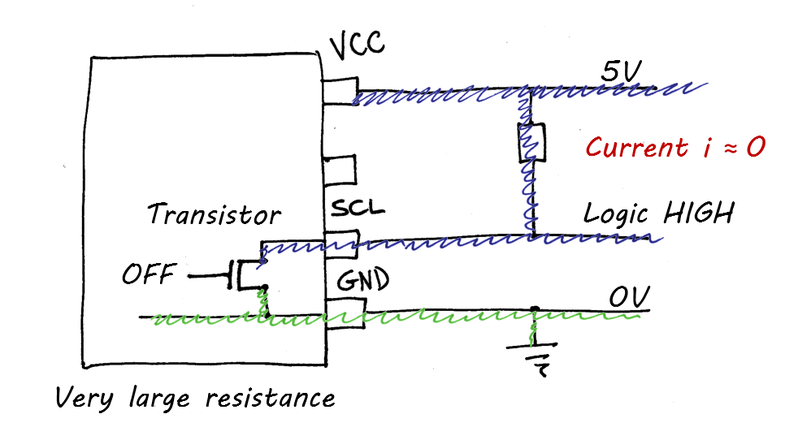 VCC
5V
Current i ≈ 0
SCL
Transistor
Logic HIGH
OFF
GND
0V
Very large resistance